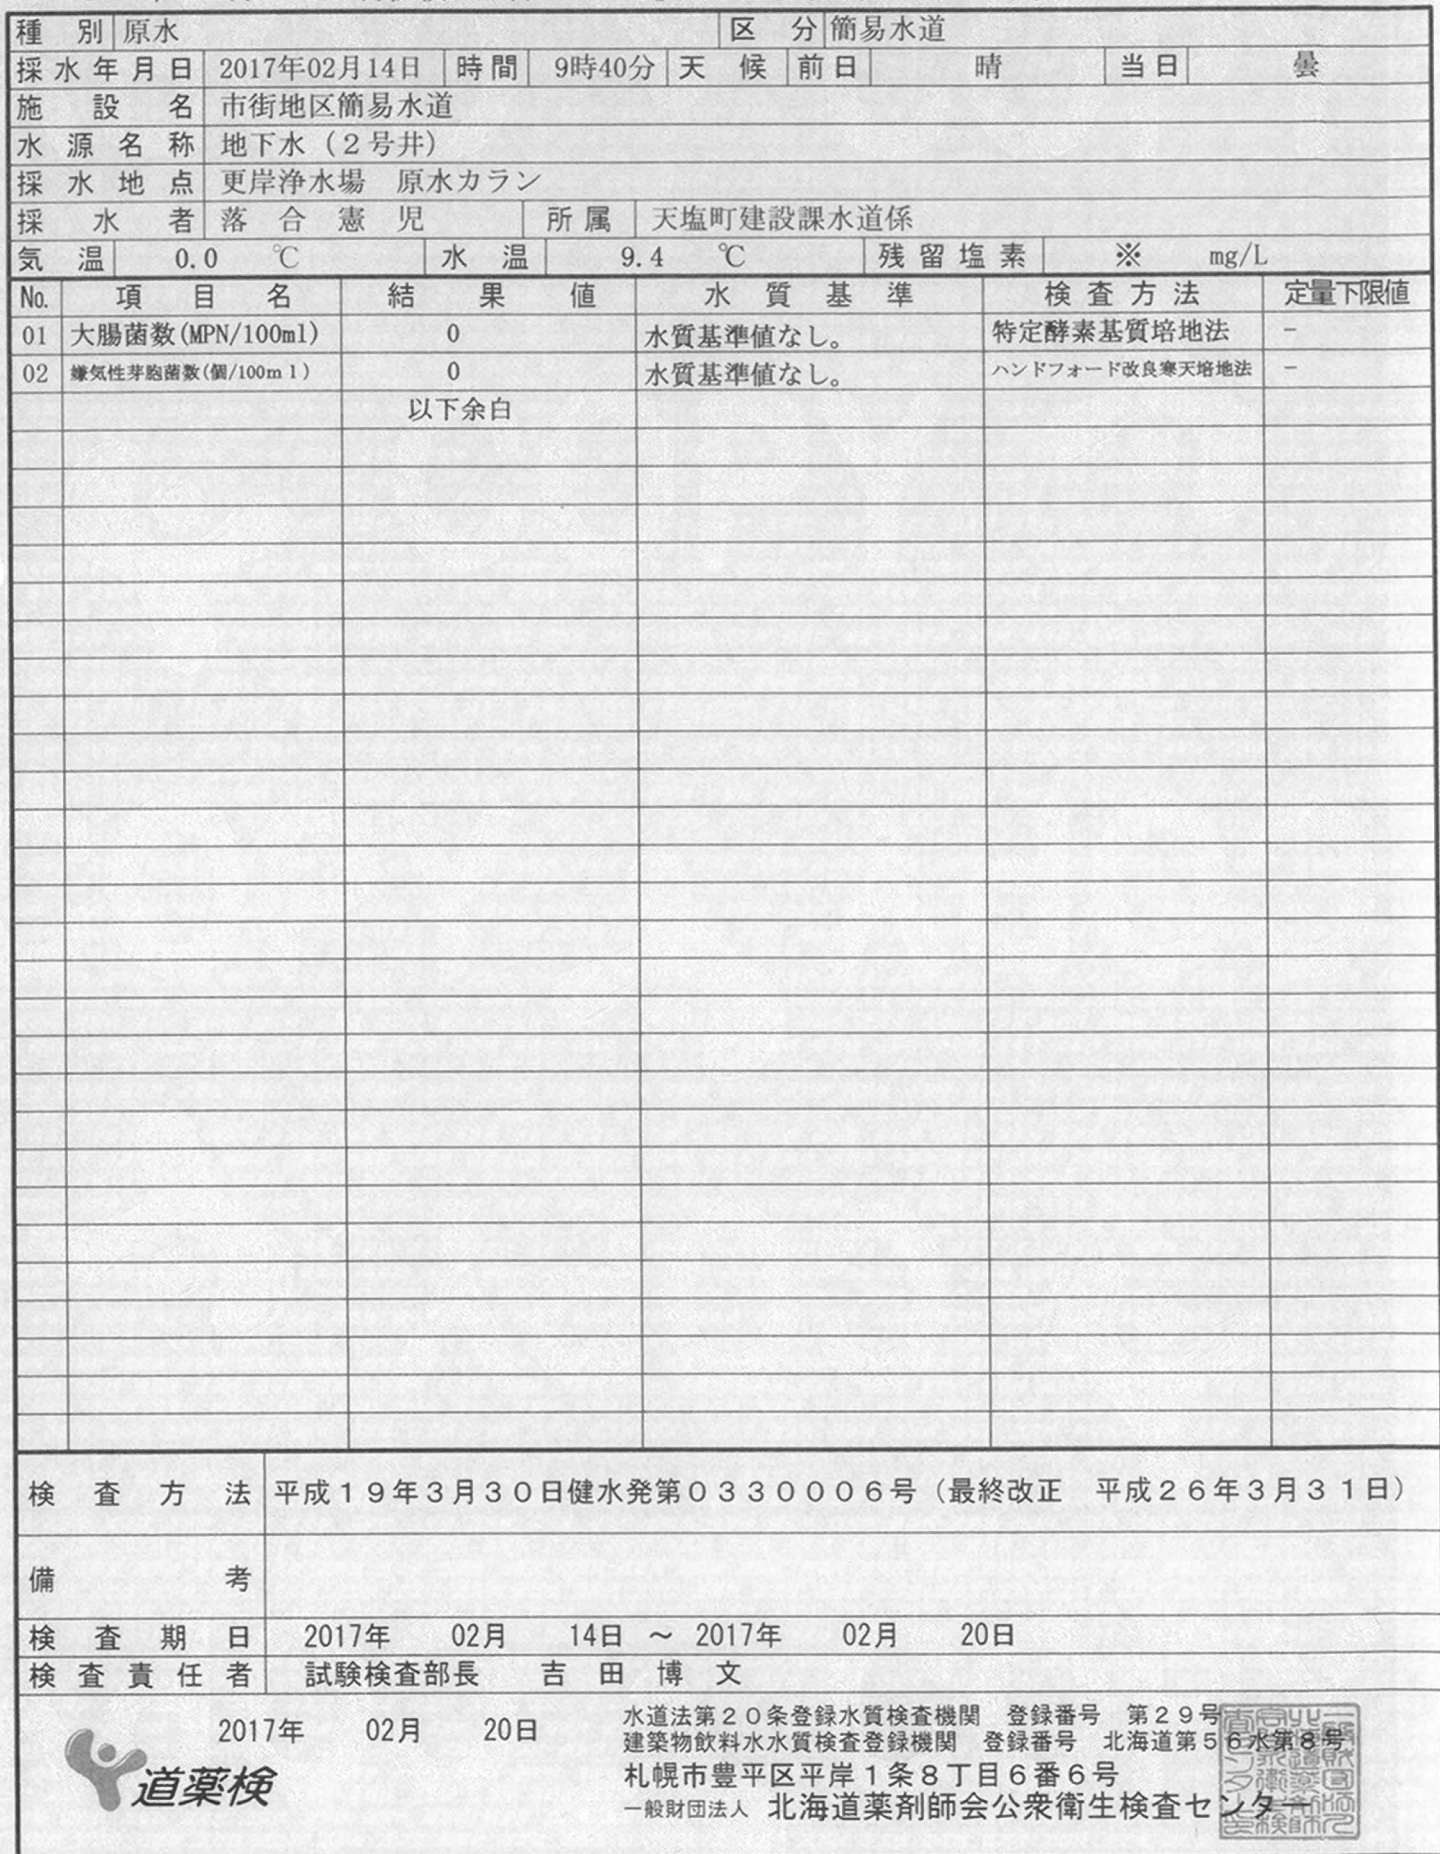 種別 原水 区分 簡易水道
採水年月日 2017年02月14日 時間 9時40分 天候 前日 晴 当日 曇
施設名 市街地区簡易水道
水源名称 地下水（2号井）
採水地点 更岸浄水場 原水カラン
採水者 落合憲児 所属 天塩町建設課水道係
気温 0.0 ℃ 水温 9.4 ℃ 残留塩素 ※ mg/L
No. 項目名 結果値 水質基準 検査方法 定量下限値
01 大腸菌数(MPN/100ml) 0 水質基準値なし。 特定酵素基質培地法 －
02 嫌気性芽胞菌数(個/100ml) 0 水質基準値なし。 ハンドフォード改良寒天培地法 －
以下余白
検査方法 平成19年3月30日健水発第0330006号（最終改正 平成26年3月31日）
備考
検査期日 2017年 02月 14日 ～ 2017年 02月 20日
検査責任者 試験検査部長 吉田博文
2017年 02月 20日
道薬検
水道法第20条登録水質検査機関 登録番号 第29号
建築物飲料水水質検査登録機関 登録番号 北海道第56水第8号
札幌市豊平区平岸1条8丁目6番6号
一般財団法人 北海道薬剤師会公衆衛生検査センター